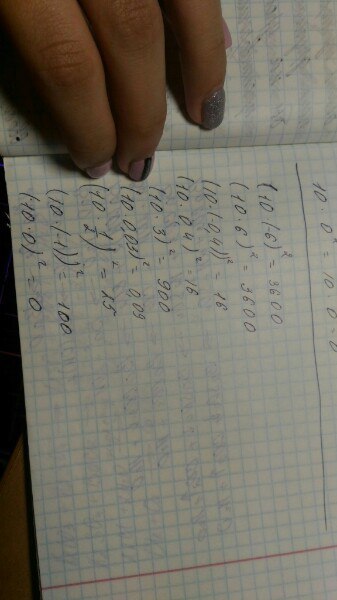 10 · 0² = 10 · 0 = 0
(10 · (-6)² = 3600
(10 · 6)² = 3600
(10 · (-0,4))² = 16
(10 · 0,4)² = 16
(10 · 3)² = 900
(10 · 0,03)² = 0,09
(10 · 1/2)² = 25
(10 · (-1))² = 100
(10 · 0)² = 0